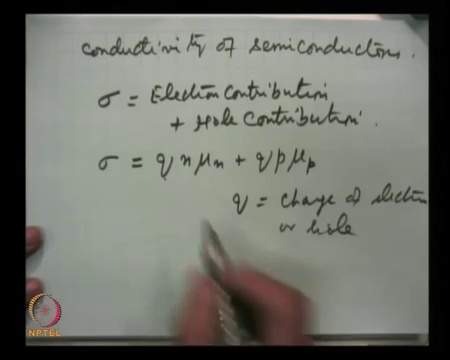 conductivity of semiconductors.
σ = Electron contribution
+ Hole contribution.
σ = q n μn + q p μp
q = charge of electron
or hole
NPTEL